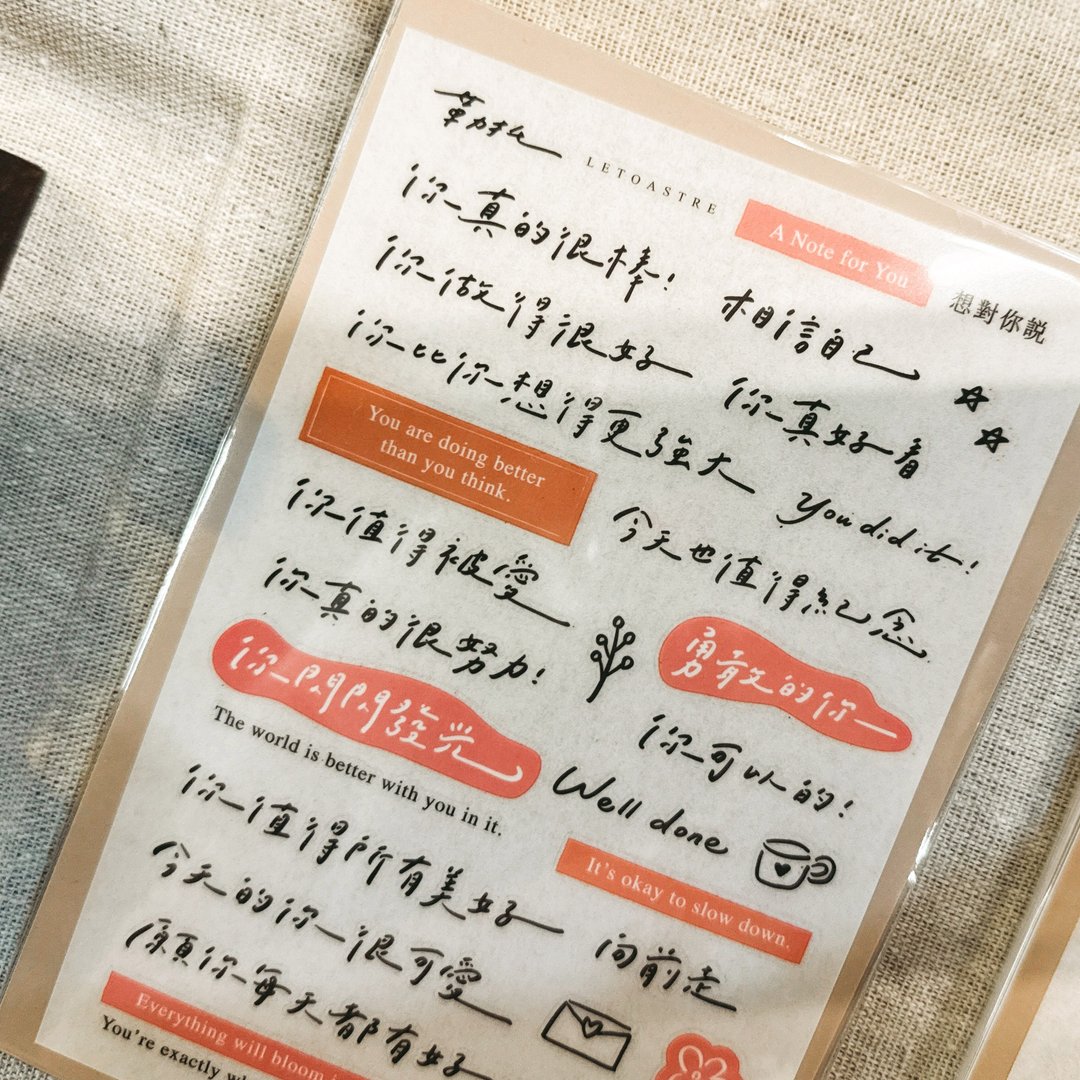 LETOASTRE
A Note for You
想對你說
你真的很棒!
相信自己
你做得很好
你真好看
你比你想得更強大
You did it!
You are doing better
than you think.
今天也值得紀念
你值得被愛
你真的很努力!
勇敢的你
你閃閃發光
你可以的!
The world is better with you in it.
Well done
你值得所有美好
It's okay to slow down.
今天的你很可愛
向前走
願你每天都有好
Everything will bloom
You're exactly